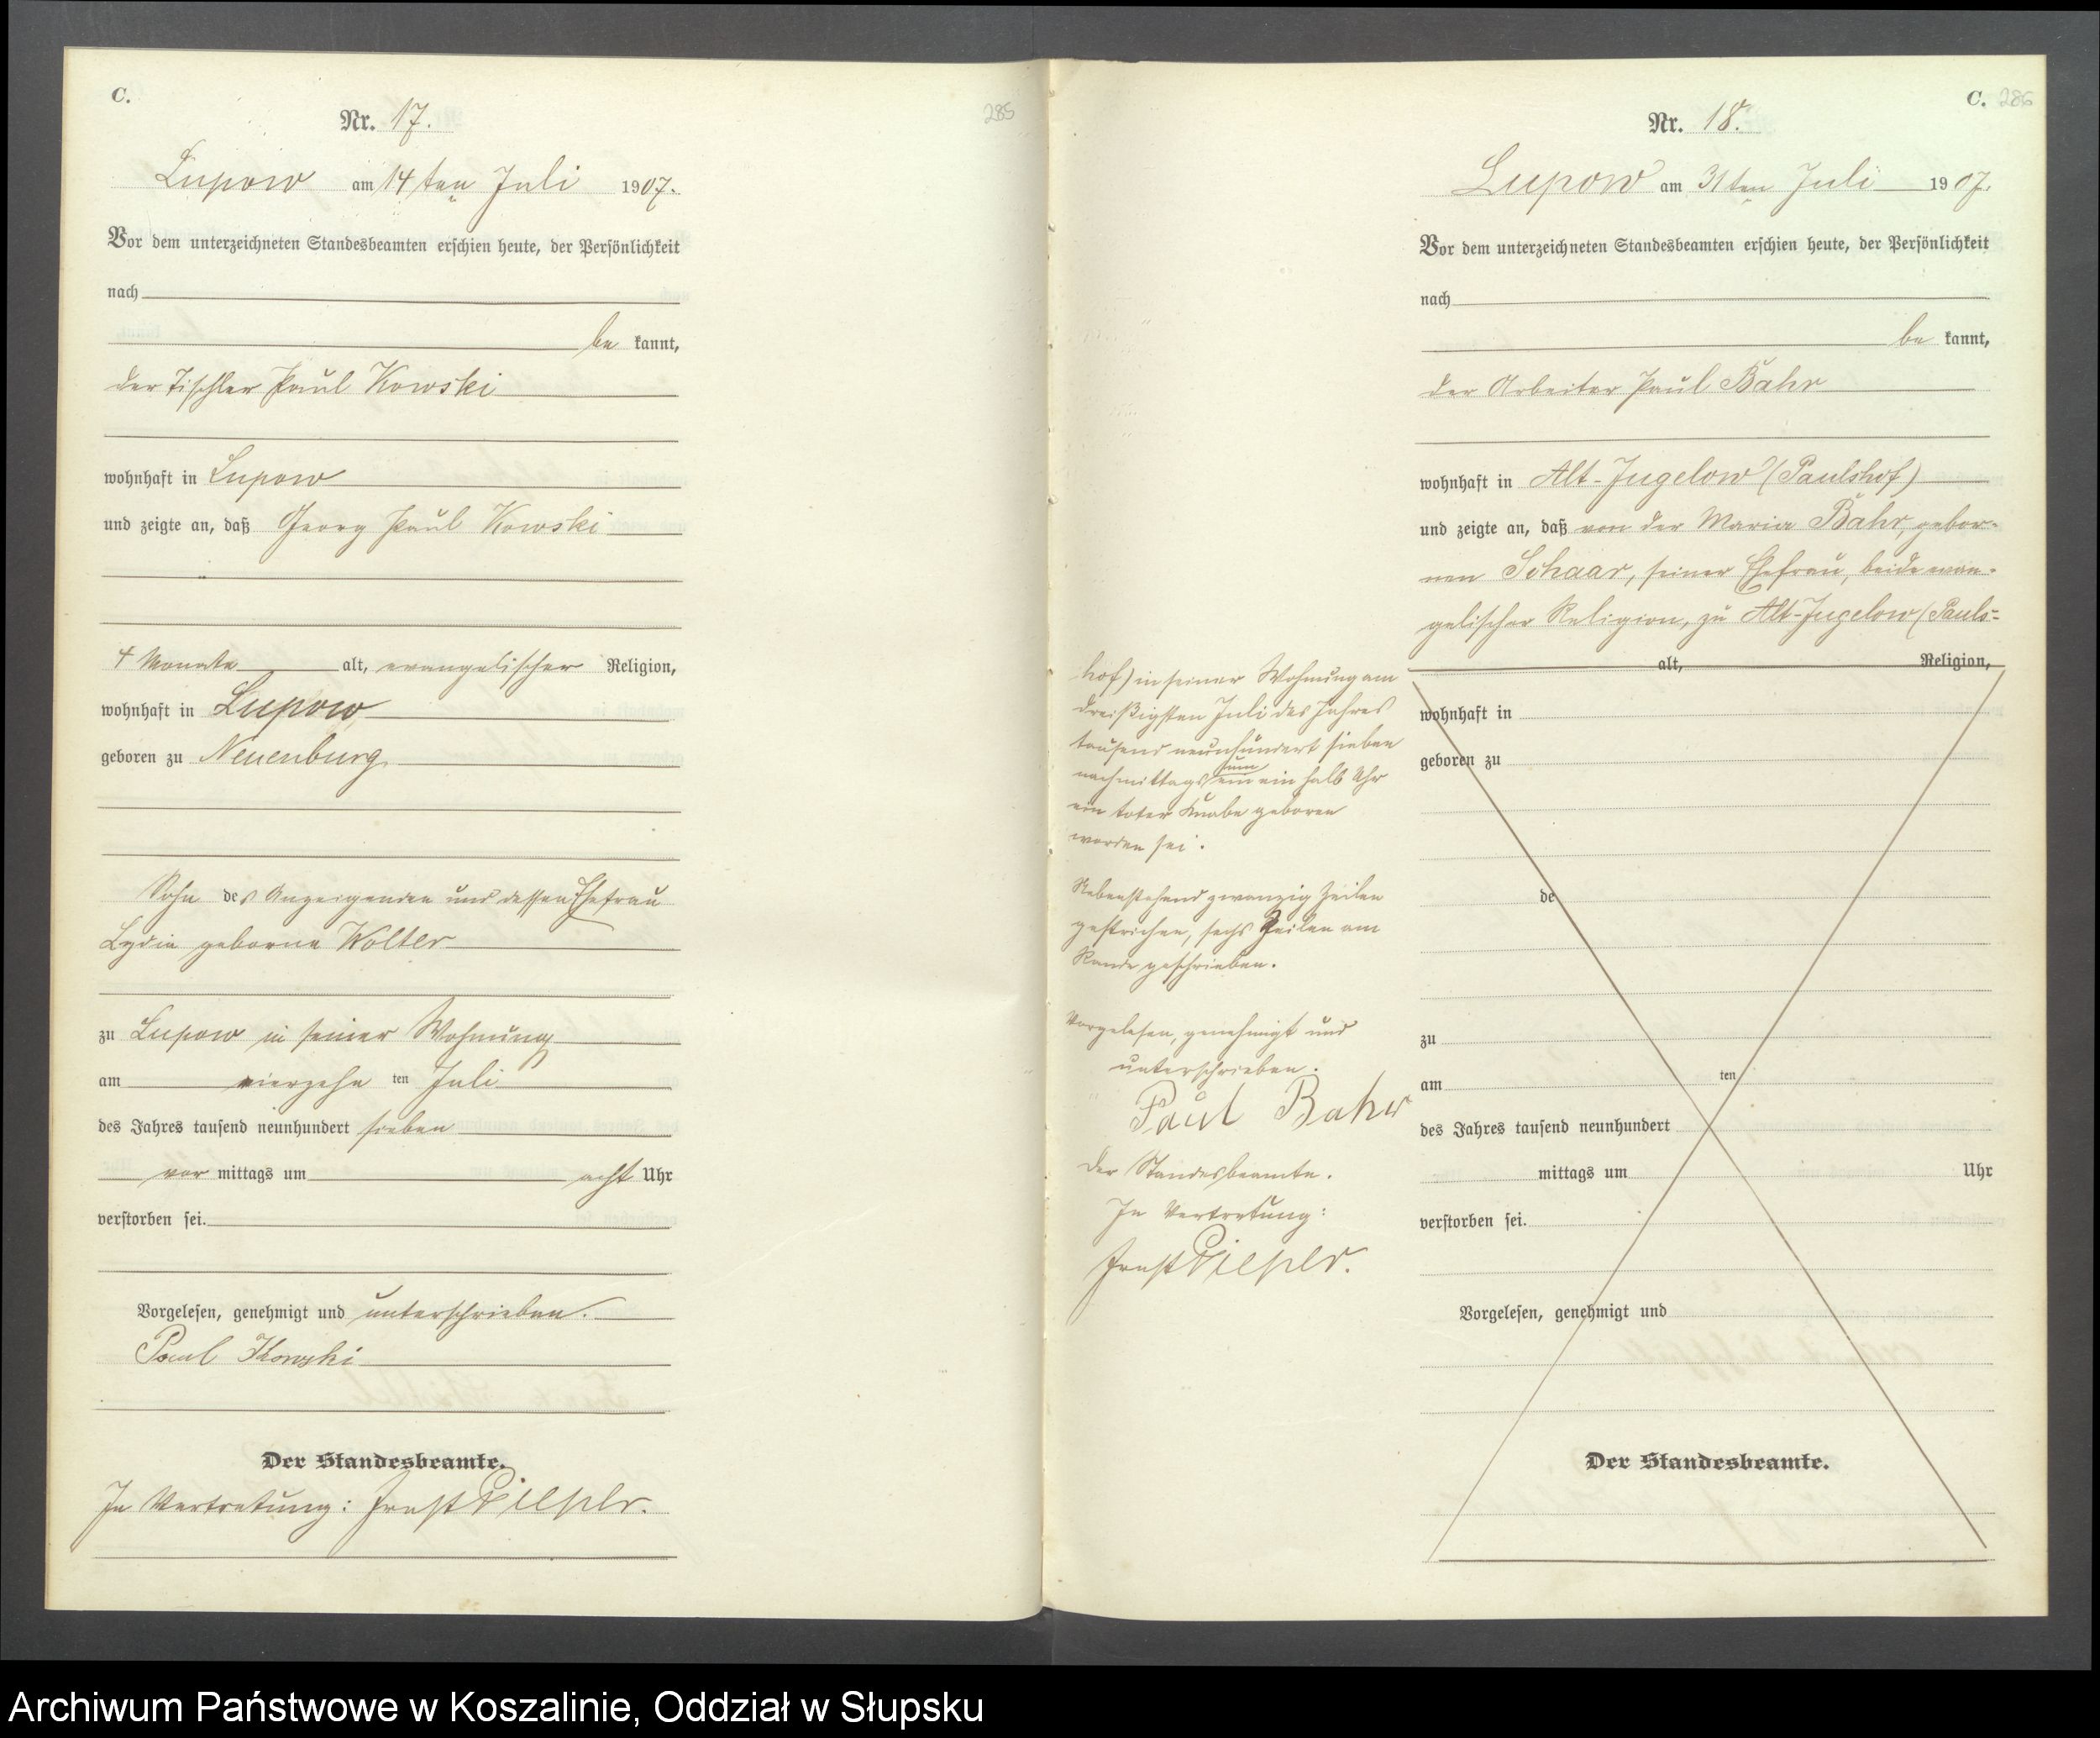 C.
Nr. 17.
Lupow am 14ten Juli 1907.
Vor dem unterzeichneten Standesbeamten erschien heute, der Persönlichkeit
nach
be kannt,
der Tischler Paul Kowski
wohnhaft in Lupow
und zeigte an, daß Georg Paul Kowski
4 Monate alt, evangelischer Religion,
wohnhaft in Lupow
geboren zu Neuenburg
Sohn des Anzeigenden und dessen Ehefrau
Lydia geborne Wolter
zu Lupow in seiner Wohnung
am vierzehn ten Juli
des Jahres tausend neunhundert sieben
vor mittags um acht Uhr
verstorben sei.
Vorgelesen, genehmigt und unterschrieben.
Paul Kowski
Der Standesbeamte.
In Vertretung: Ernst Pieper.
285
C. 286
Nr. 18.
Lupow am 31ten Juli 1907.
Vor dem unterzeichneten Standesbeamten erschien heute, der Persönlichkeit
nach
be kannt,
der Arbeiter Paul Bahr
wohnhaft in Alt-Jugelow (Paulshof)
und zeigte an, daß von der Maria Bahr, gebor-
nen Schaar, seiner Ehefrau, beide evan-
gelischer Religion, zu Alt-Jugelow (Pauls-
alt, Religion,
hof) in seiner Wohnung am
dreißigsten Juli des Jahres
tausend neunhundert sieben
nachmittags um ein halb Uhr
ein toter Knabe geboren
worden sei.
Nebenstehend zwanzig Zeilen
gestrichen, sechs Zeilen am
Rande geschrieben.
Vorgelesen, genehmigt und
unterschrieben.
Paul Bahr
Der Standesbeamte.
In Vertretung:
Ernst Pieper.
wohnhaft in
geboren zu
de
zu
am ten
des Jahres tausend neunhundert
mittags um Uhr
verstorben sei.
Vorgelesen, genehmigt und
Der Standesbeamte.
Archiwum Państwowe w Koszalinie, Oddział w Słupsku